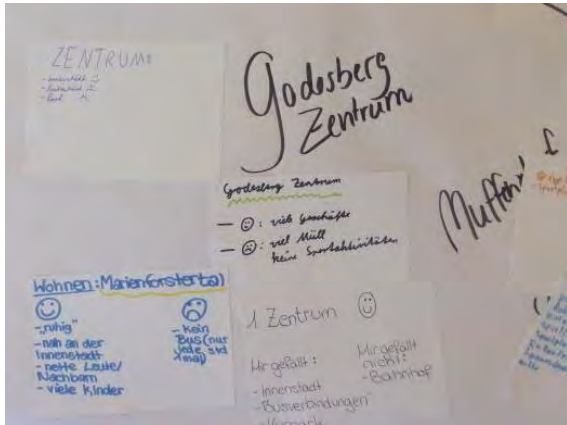 ZENTRUM:
Godesberg
Zentrum
Godesberg Zentrum
- ☺: viele Geschäfte
- ☹: viel Müll
keine Sportaktivitäten
Muffen
Wohnen: Marienforstertal
☺
- "ruhig"
- nah an der
Innenstadt
- nette Leute/
Nachbarn
- viele Kinder
☹
- kein
Bus (nur
jede std
1mal)
1. Zentrum ☺
Mir gefällt:
- Innenstadt
- Busverbindungen"
- Kurpark
Mir gefällt
nicht:
- Bahnhof